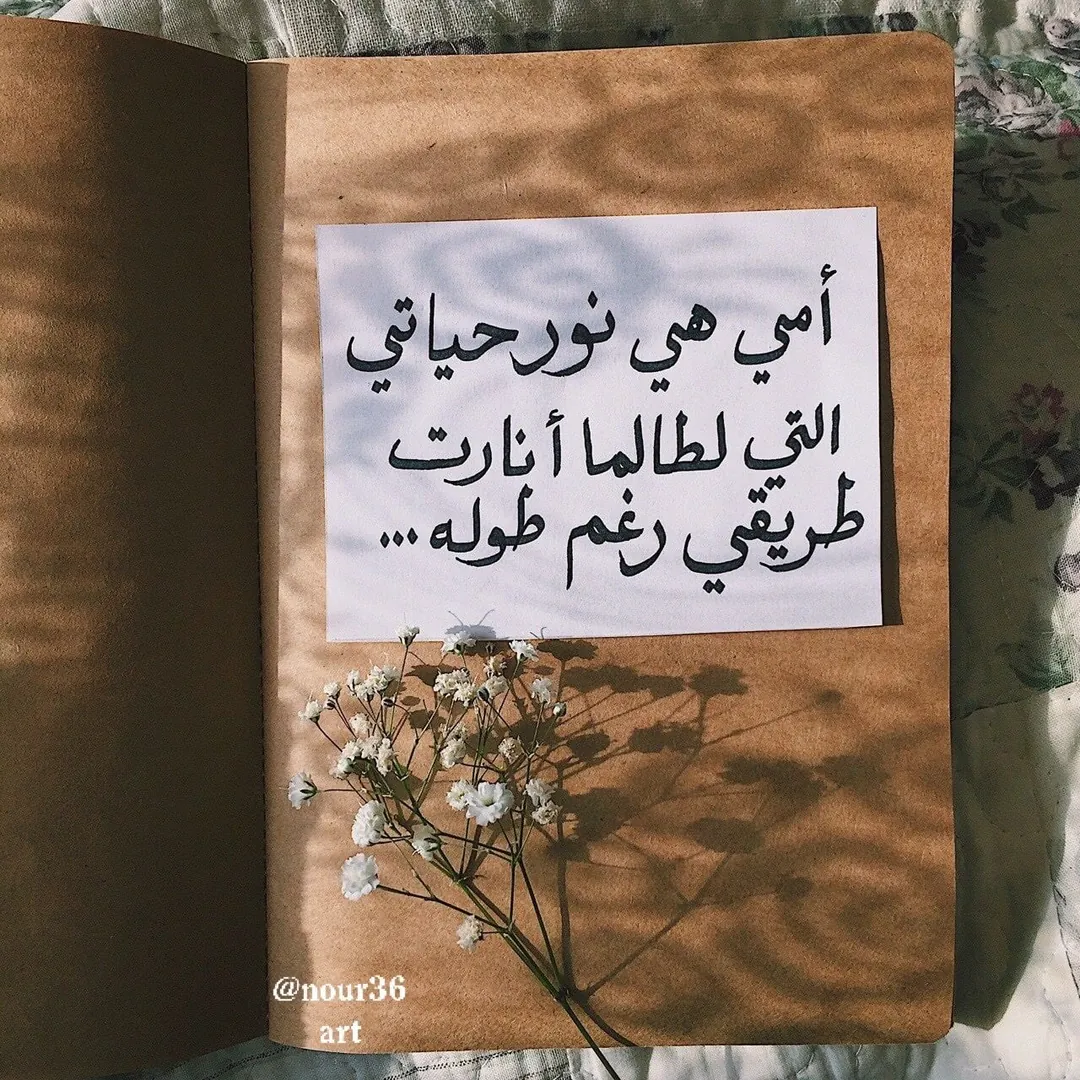 أمي هي نور حياتي
التي لطالما أنارت
طريقي رغم طوله...
@nour36
art